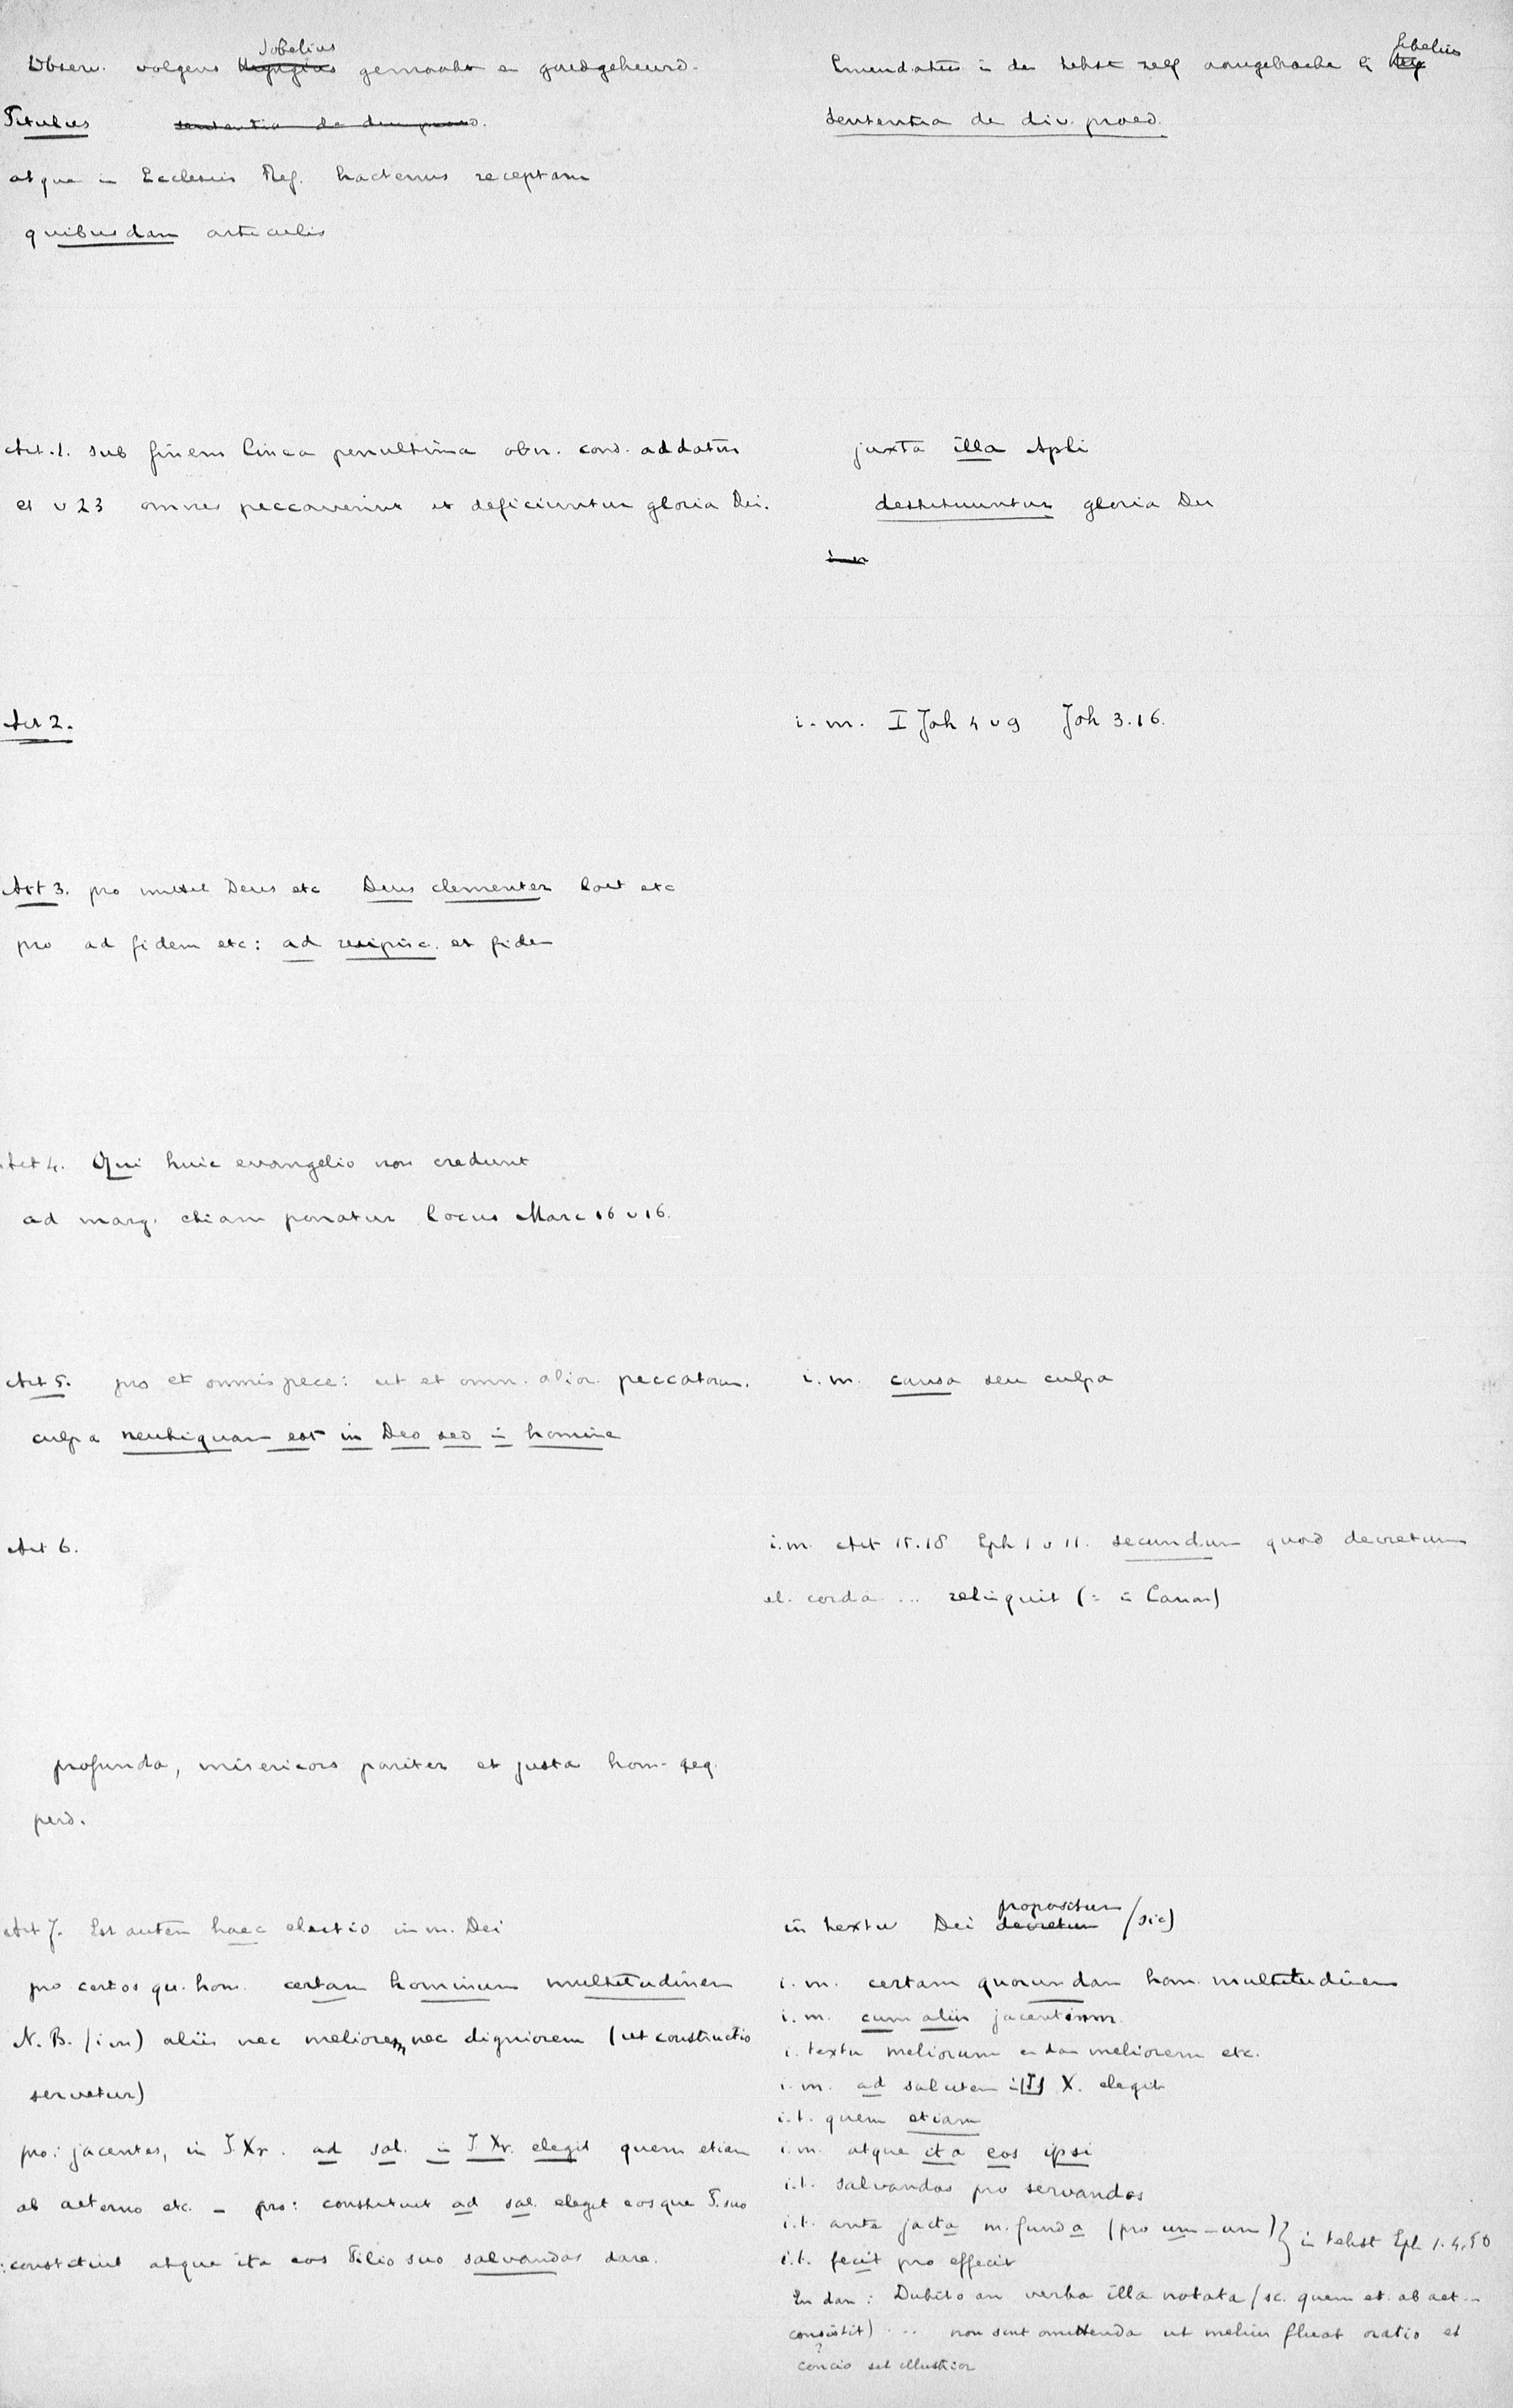 Observ. volgens Sibelius gemaakt en goedgekeurd.
Titulus sententia de div. praed.
atque in Ecclesiis Ref. hactenus receptam
quibusdam articulis
Art. 1. sub finem linea penultima obn. cond. addatur
et v 23 omnes peccaverint et deficiuntur gloria Dei.
Art 2.
Art 3. pro mittit Deus etc Deus clementer loit etc
pro ad fidem etc: ad resipisc. et fidem
Art 4. Qui huic evangelio non credunt
ad marg. etiam ponatur locus Marc 16 v 16.
Art 5. pro et omnis pecc: ut et omn. alior. peccatorum.
culpa neutiquam est in Deo sed in homine
Art 6.
profunda, misericors pariter et justa hom-
perd.
Art 7. Est autem haec electio imm. Dei
pro certos qu. hom. certam hominum multitudinem
N.B. (im) aliis nec meliorem, nec digniorem (ut constructio
servetur)
pro: jacentes, in J. Xr. ad sal. in J. Xr. elegit quem etiam
ab aeterno etc. - pro: constituit ad sal. elegit eosque F. suo
: constituit atque ita eos Filio suo salvandos dare.
Emendaties in de tekst zelf aangebracht bij Sibelius
Sententia de div. praed.
juxta illa Apli
destituuntur gloria Dei
i. m. I Joh 4 v 9 Joh 3.16.
i. m. causa seu culpa
i. m. Act 15.18 Eph 1 v 11. secundum quod decretum
el. corda ... relinquit (= in Canon)
in textu Dei decretum propositum (sic)
i. m. certam quorundam hom. multitudinem
i. m. cum aliis jacentium
i. textu meliorum en dan meliorem etc.
i. m. ad salutem in J X. elegit
i. t. quem etiam
i. m. atque ita eos ipsi
i. t. salvandos pro servandos
i. t. ante jacta m. funda (pro um - um) } in tekst Eph 1.4,5 6
i. t. fecit pro effecit
En dan: Dubito an verba illa notata (sc. quem et. ab aet ..
consistit) ... non sint omittenda ut melius fluat oratio et
concio sit illustrior